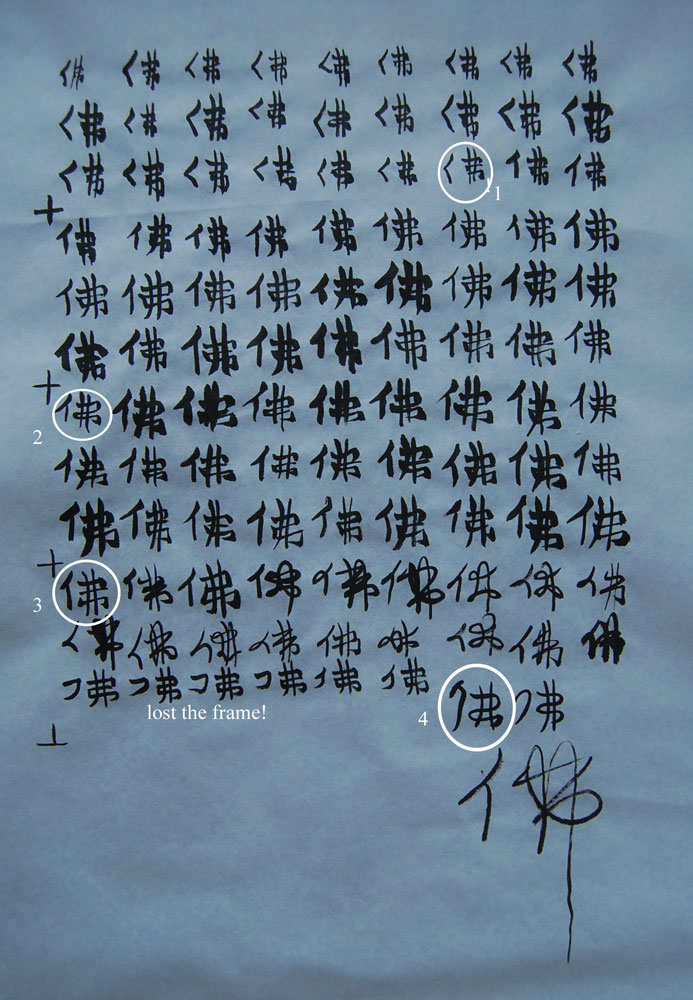 佛佛佛佛佛佛佛佛佛
佛佛佛佛佛佛佛佛佛
佛佛佛佛佛佛佛佛佛
1
佛佛佛佛佛佛佛佛佛
佛佛佛佛佛佛佛佛佛
佛佛佛佛佛佛佛佛佛
佛佛佛佛佛佛佛佛佛
2
佛佛佛佛佛佛佛佛佛
佛佛佛佛佛佛佛佛佛
佛佛佛佛佛佛佛佛佛
3
佛佛佛佛佛佛佛佛佛
佛佛佛佛佛佛
lost the frame!
4
佛佛
佛